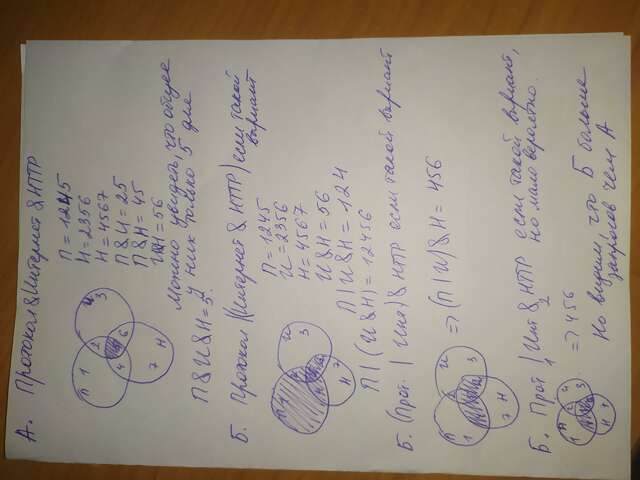 А. Протокол & Интернет & HTTP
П = 1245
И = 2356
H = 4567
П & И = 25
П & H = 45
И&H = 56
Можно увидеть, что общее
у них только 5 для
П & И & H = 5.
П И
1 2 3
4 5 6
7 H
Б. Протокол |(Интернет & HTTP) если такой
вариант
П = 1245
И = 2356
H = 4567
И & H = 56
П | И & H = 124
П | (И & H) = 12456
Б. (Прот. | Инт) & HTTP если такой вариант
=> (П | И) & H = 456
П И
1 3
7 H
Б. Прот | Инт & HTTP если такой вариант,
1 2
но мало вероятно.
=> 456
Но видим что Б больше
запросов чем А